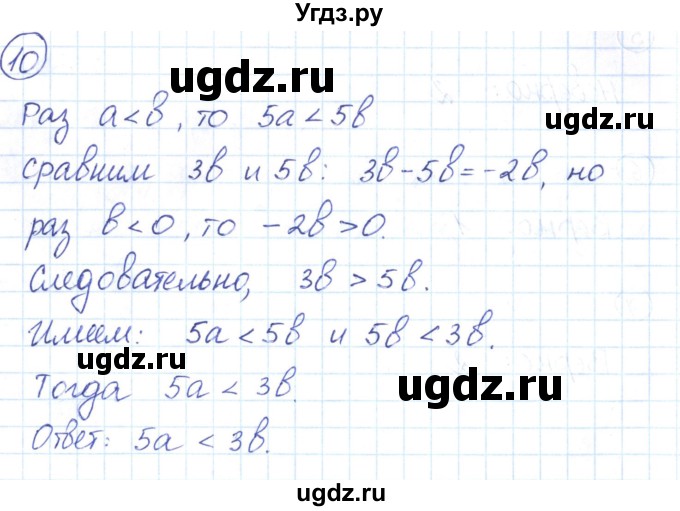 Угдз.ру
10
ugdz.ru
Раз a<b, то 5a<5b
ugdz.ru
Сравним 3b и 5b: 3b-5b=-2b, но
раз b<0, то -2b>0.
Следовательно, 3b > 5b.
Имеем: 5a < 5b и 5b < 3b.
ugdz.ru
Тогда 5a < 3b.
ugdz.ru
Ответ: 5a < 3b.
ugdz.ru